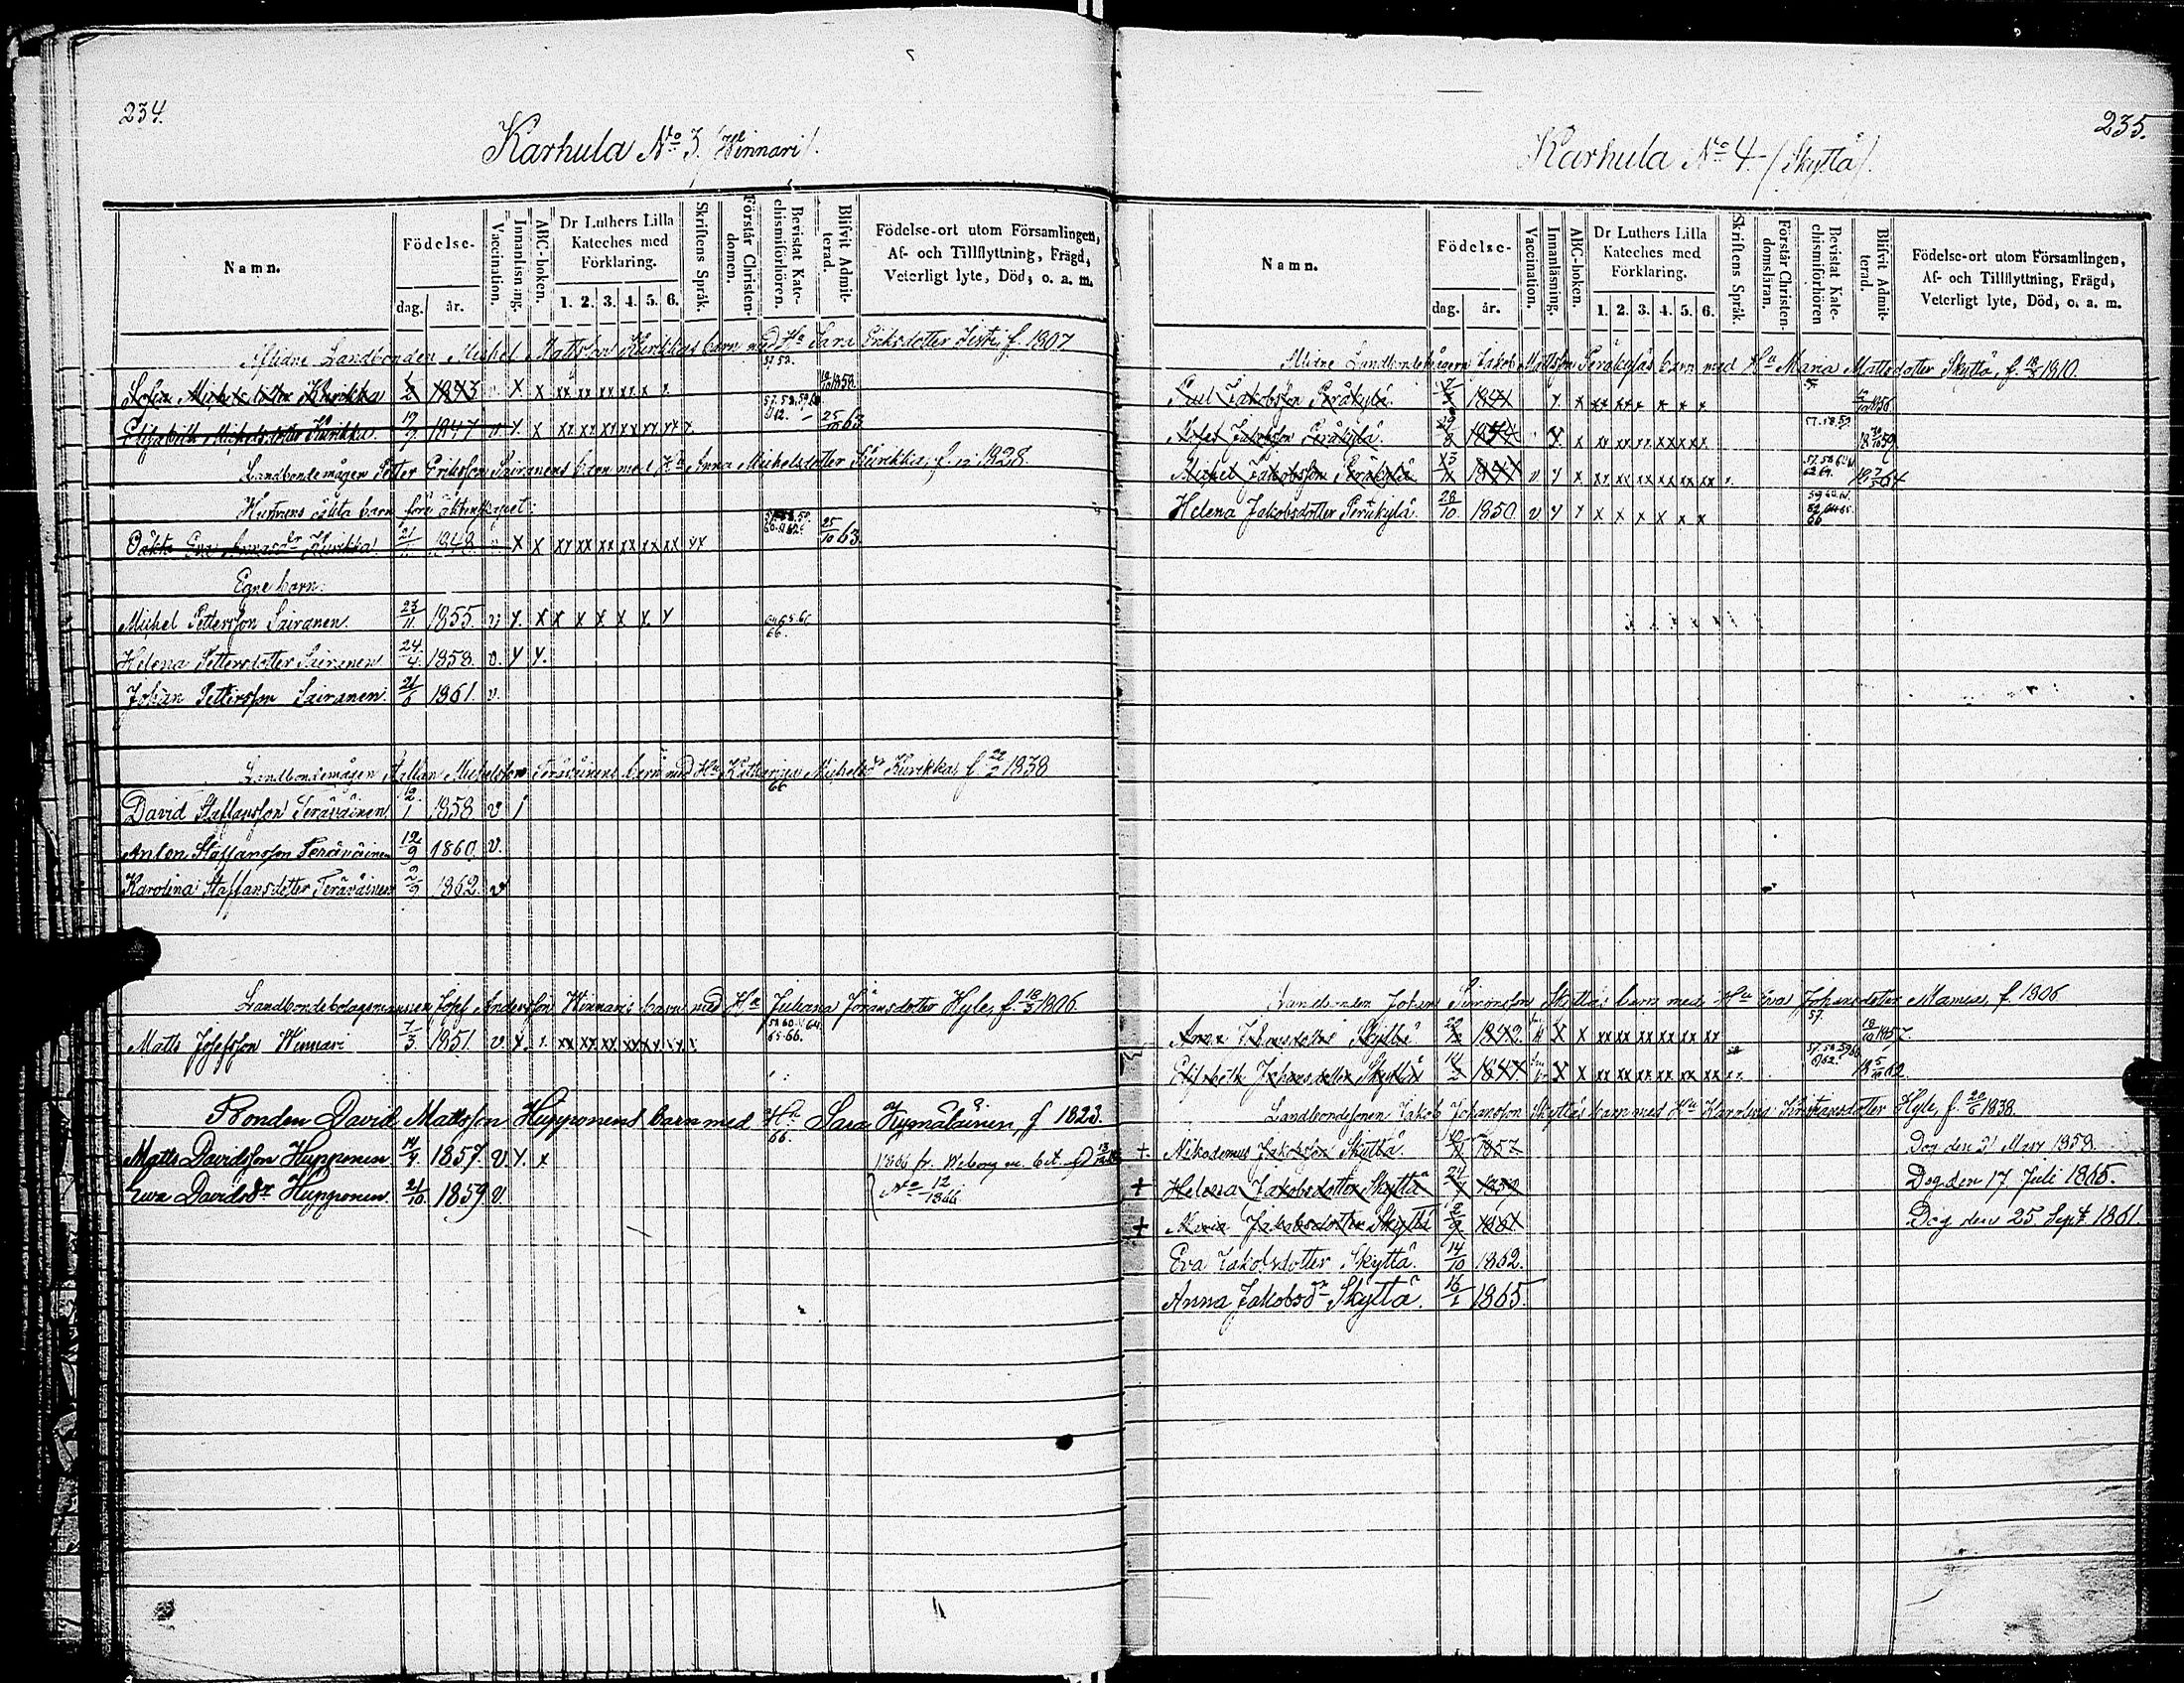 234.
Karhula No 3. (Winnari).
Namn. Födelse- dag. år. Vaccination. Innanläsning. ABC-boken. Dr Luthers Lilla Kateches med Förklaring. 1. 2. 3. 4. 5. 6. Skriftens Språk. Förstår Christendomen. Bevistat Katechismiförhören. Blifvit Admitterad. Födelse-ort utom Församlingen, Af- och Tillflyttning, Frägd, Veterligt lyte, Död, o. a. m.
Landbonden Michel Mattsson Kurikkas barn med Hu Sara Eriksdotter f. 1807
Sofia Michelsdotter Kurikka 1843 x x xx xx xx x x x.
Elisabeth Michelsdotter Kurikka 19/9 1847 v. x. x xx xx xx xx xx xx 25/10 63
Landbondemågen Petter Eriksson Sairanens barn med Hu Anna Michelsdotter Kurikka, f. 1828.
Hustruns oäkta barn före äktenskapet:
Oäkta Eva Annasdr Kurikka 1848 x x xx xx xx xx xx xx xx 25/10 63.
Egne barn.
Michel Pettersson Sairanen 23/11 1855. v. x. x x x x x x. x 66.
Helena Pettersdotter Sairanen 24/4 1858. v. x x.
Johan Pettersson Sairanen. 21/6 1861. v.
Landbondemågen Staffan Michelsson Teräväinens barn med Hu Katharina Michelsdr Kurikka, f. 22/2 1838
66
David Staffansson Teräväinen 12/1 1858 v /
Anton Staffansson Teräväinen 12/9 1860. v.
Karolina Staffansdotter Teräväinen 2/9 1862. v
Landbondebolagsmannen Josef Andersson Winnaris barn med Hu Juliana Jöransdotter Hyle, f. 18/3 1806.
Matts Josefsson Winnari 7/3. 1851. v. x. x. xx xx xx xx xx xx 65. 66.
Bonden David Mattsson Hupponens barn med Hu Sara Kymäläinen, f 1823.
66.
Matts Davidsson Hupponen 14/4 1857. v. x. x 1866 fr. Weborg
Eva Davidsdr Hupponen. 21/10. 1859 v. No 12/1866
235.
Karhula No 4. (Skyttä).
Namn. Födelse- dag. år. Vaccination. Innanläsning. ABC-boken. Dr Luthers Lilla Kateches med Förklaring. 1. 2. 3. 4. 5. 6. Skriftens Språk. Förstår Christendomsläran. Bevistat Katechismiförhören Blifvit Admitterad. Födelse-ort utom Församlingen, Af- och Tillflyttning, Frägd, Veterligt lyte, Död, o. a. m.
Landbondemågen Jakob Mattsson Peräkyläs barn med Hu Maria Mattsdotter Skyttä, f. 1810.
Paul Jakobsson Peräkylä. 1841 x. x xx xx x x x x 1856
Josef Jakobsson Peräkylä. x. x xx xx xx xx xx xx 57. 58. 59. 59
Michel Jakobsson Peräkylä v x x xx xx xx xx xx xx x. 64
Helena Jakobsdotter Peräkylä 28/10. 1850 v x x x x x x x x 66
Landbonden Johan Simonsson Skyttäs barn med Hu Eva Johansdotter Mamia, f. 1806
57.
Anna Johansdotter Skyttä 1842. x x xx xx xx xx xx xx 18/10 1857.
Elisabeth Johansdotter Skyttä 1847. x x xx xx xx xx xx xx 62
Landbondesonen Jakob Johansson Skyttäs barn med Hu Karolina Kristiansdotter Hyle, f. 20/6 1838.
+ Nikodemus Jakobsson Skyttä. 1857 Dog den 31 Mars 1858
+ Helena Jakobsdotter Skyttä 24/7 1859 Dog den 17 Juli 1865.
+ Maria Jakobsdotter Skyttä 1861 Dog den 25 Sept 1861.
Eva Jakobsdotter Skyttä. 14/10 1862.
Anna Jakobsdr Skyttä. 16/1 1865.